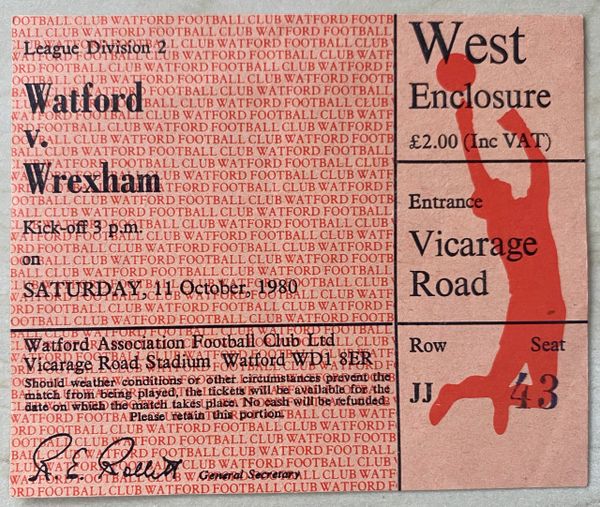 League Division 2
Watford
v.
Wrexham
Kick-off 3 p.m.
on
SATURDAY, 11 October, 1980
West
Enclosure
£2.00 (Inc VAT)
Entrance
Vicarage
Road
Row Seat
JJ 43
Watford Association Football Club Ltd
Vicarage Road Stadium Watford WD1 8ER
Should weather conditions or other circumstances prevent the
match from being played, the tickets will be available for the
date on which the match takes place. No cash will be refunded
Please retain this portion.
General Secretary